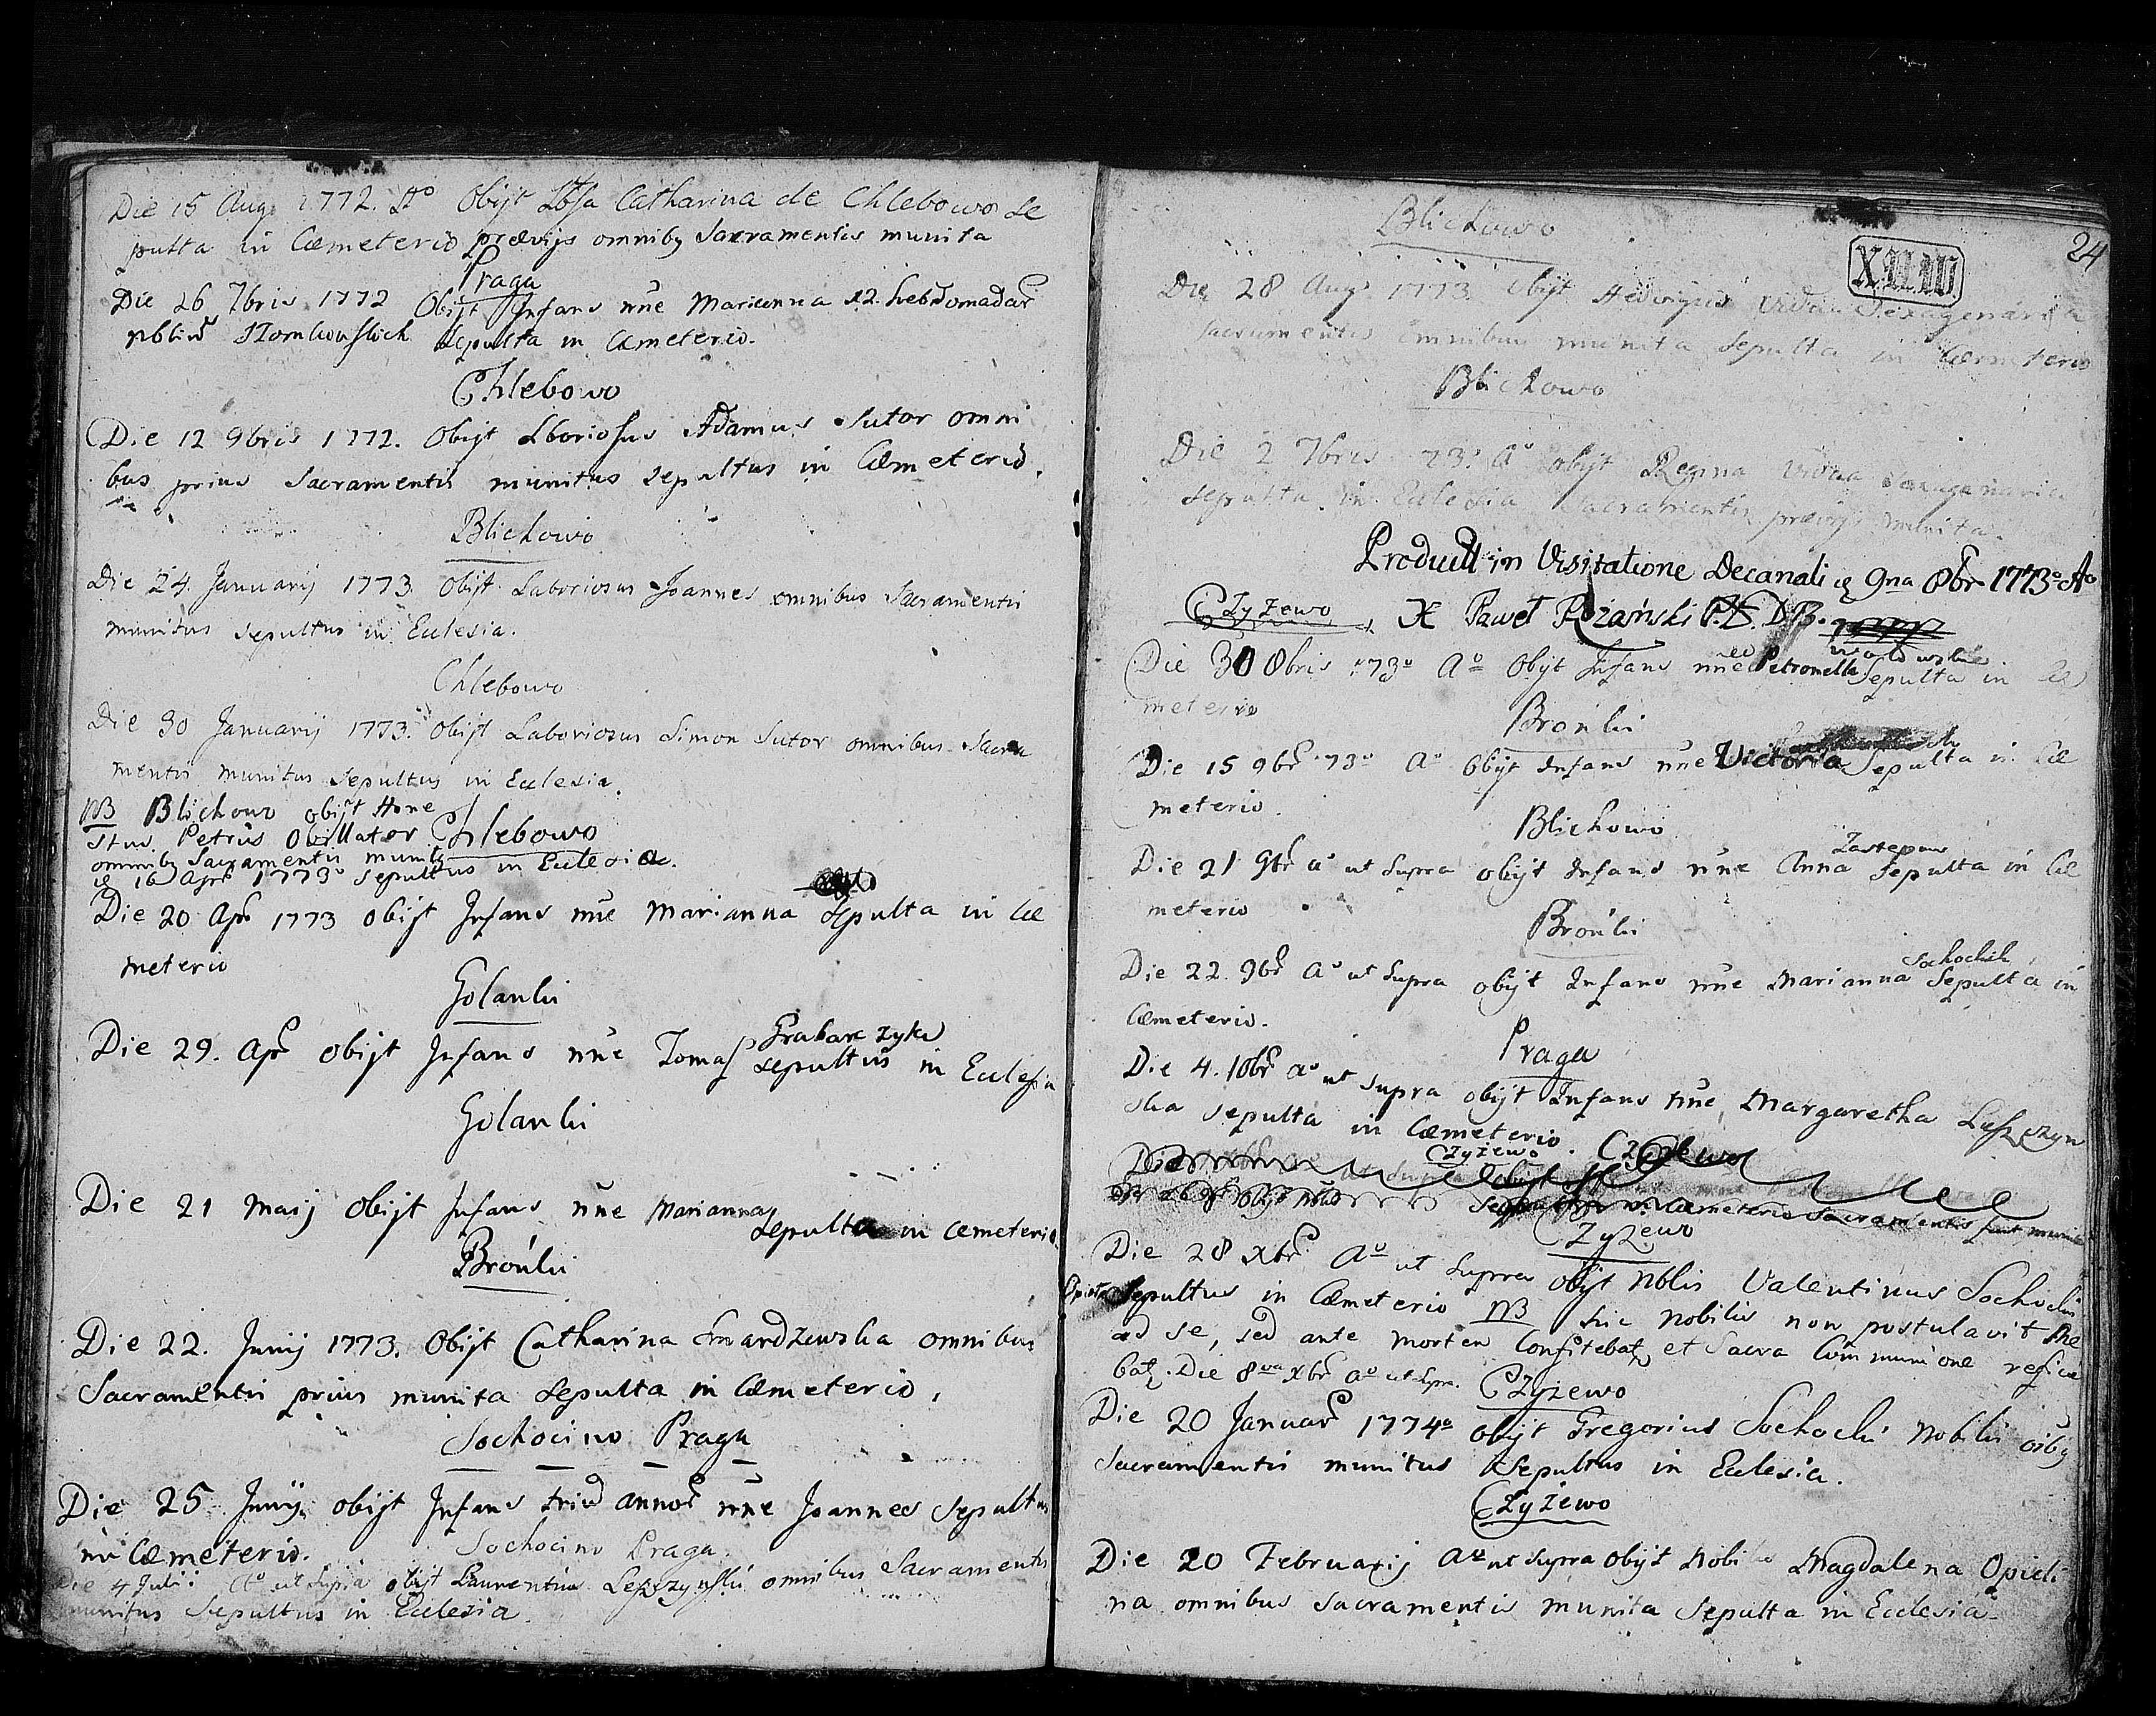 Die 15 Aug 1772. Ao Obijt Lbsa Catharina de Chlebowo Se
pulta in Cæmeterio prævijs omnibq Sacramentis munita
Praga
Die 26 7bris 1772 Obijt Infans nñe Marianna 12. hebdomadar
nbliũ Sepulta in Cæmeterio.
Chlebowo
Die 12 9bris 1772. Obijt Lboriosus Adamus Sutor omni
bus prius Sacramentis munitus sepultus in Cæmeterio.
Blichowo
Die 24 Januarij 1773. Obijt Laboriosus Joannes omnibus Sacramentis
munitus sepultus in Ecclesia.
Chlebowo
Die 30 Januarij 1773. Obijt Laboriosus Simon Sutor omnibus Sacra
mentis munitus sepultus in Ecclesia.
NB Blichowo obijt Hone
stus Petrus Chlebowo
omnibq Sacramentis munitq
16 Apr 1773 sepultus in Ecclesia.
Die 20 Apr 1773 obijt Infans nñe Marianna Sepulta in Cæ
meterio
Golanki
Die 29. Apr obijt Infans nñe Tomas Grabarczyk
sepultus in Ecclesia
Golanki
Die 21 Maij obijt Infans nñe Marianna
sepulta in cæmeterio.
Brońki
Die 22. Junij 1773. Obijt Catharina Smardzewska omnibus
Sacramentis prius munita sepulta in Cæmeterio.
Sochocino Praga
Die 25 Junij obijt Infans triũ annor nñe Joannes sepultus
in Cæmeterio.
Sochocino Praga
Die 4 Julii Ao ut supra obijt Laurentius Leszczynski omnibus Sacramentis
munitus sepultus in Ecclesia.
24
Blichowo
Die 28 Aug 1773. obijt Hedvigis vidua Sexagenaria
sacramentis omnibus munita sepulta in Cæmeterio
Blichowo
Die 2 7bris 73. Ao obijt Regina vidua sexagenaria
sepulta in Ecclesia Sacramentis prævijs munita.
Product in Visitatione Decanali 9na 8br 1773o Ao
Czyżewo X Paweł
Die 30 8bris 773o Ao Obijt Infans nñe Petronella Sepulta in Cæ
meterio
Brońki
Die 15 9br 73o Ao Obijt Infans nñe Victoria Sepulta in Cæ
meterio.
Blichowo
Zastepow
Die 21 9br ao ut supra obijt Infans nñe Anna Sepulta in Cæ
meterio
Brońki
Sochocki
Die 22. 9br Ao ut supra obijt Infans nñe Marianna Sepulta in
Cæmeterio.
Praga
Die 4. 10br ao ut supra obijt Infans nñe Margaretha Leszczyn
ska sepulta in Cæmeterio.
Czyżewo
Czyżewo
Die 28 Xbr Ao ut supra obijt Nblis Valentinus Sochocki
sepultus in Cæmeterio NB hic nobilis non postulavit me
ad se, sed ante mortem confitebatq et Sacra Communione refice
batq. Die 8va Xbr Ao ut supra.
Czyżewo
Die 20 Januar 1774o obijt Gregorius Sochocki Nobilis oĩbq
Sacramentis munitus sepultus in Ecclesia.
Czyżewo
Die 20 Februarij Ao ut supra obijt Nobilis Magdalena Opieli
na omnibus Sacramentis munita Sepulta in Ecclesia.